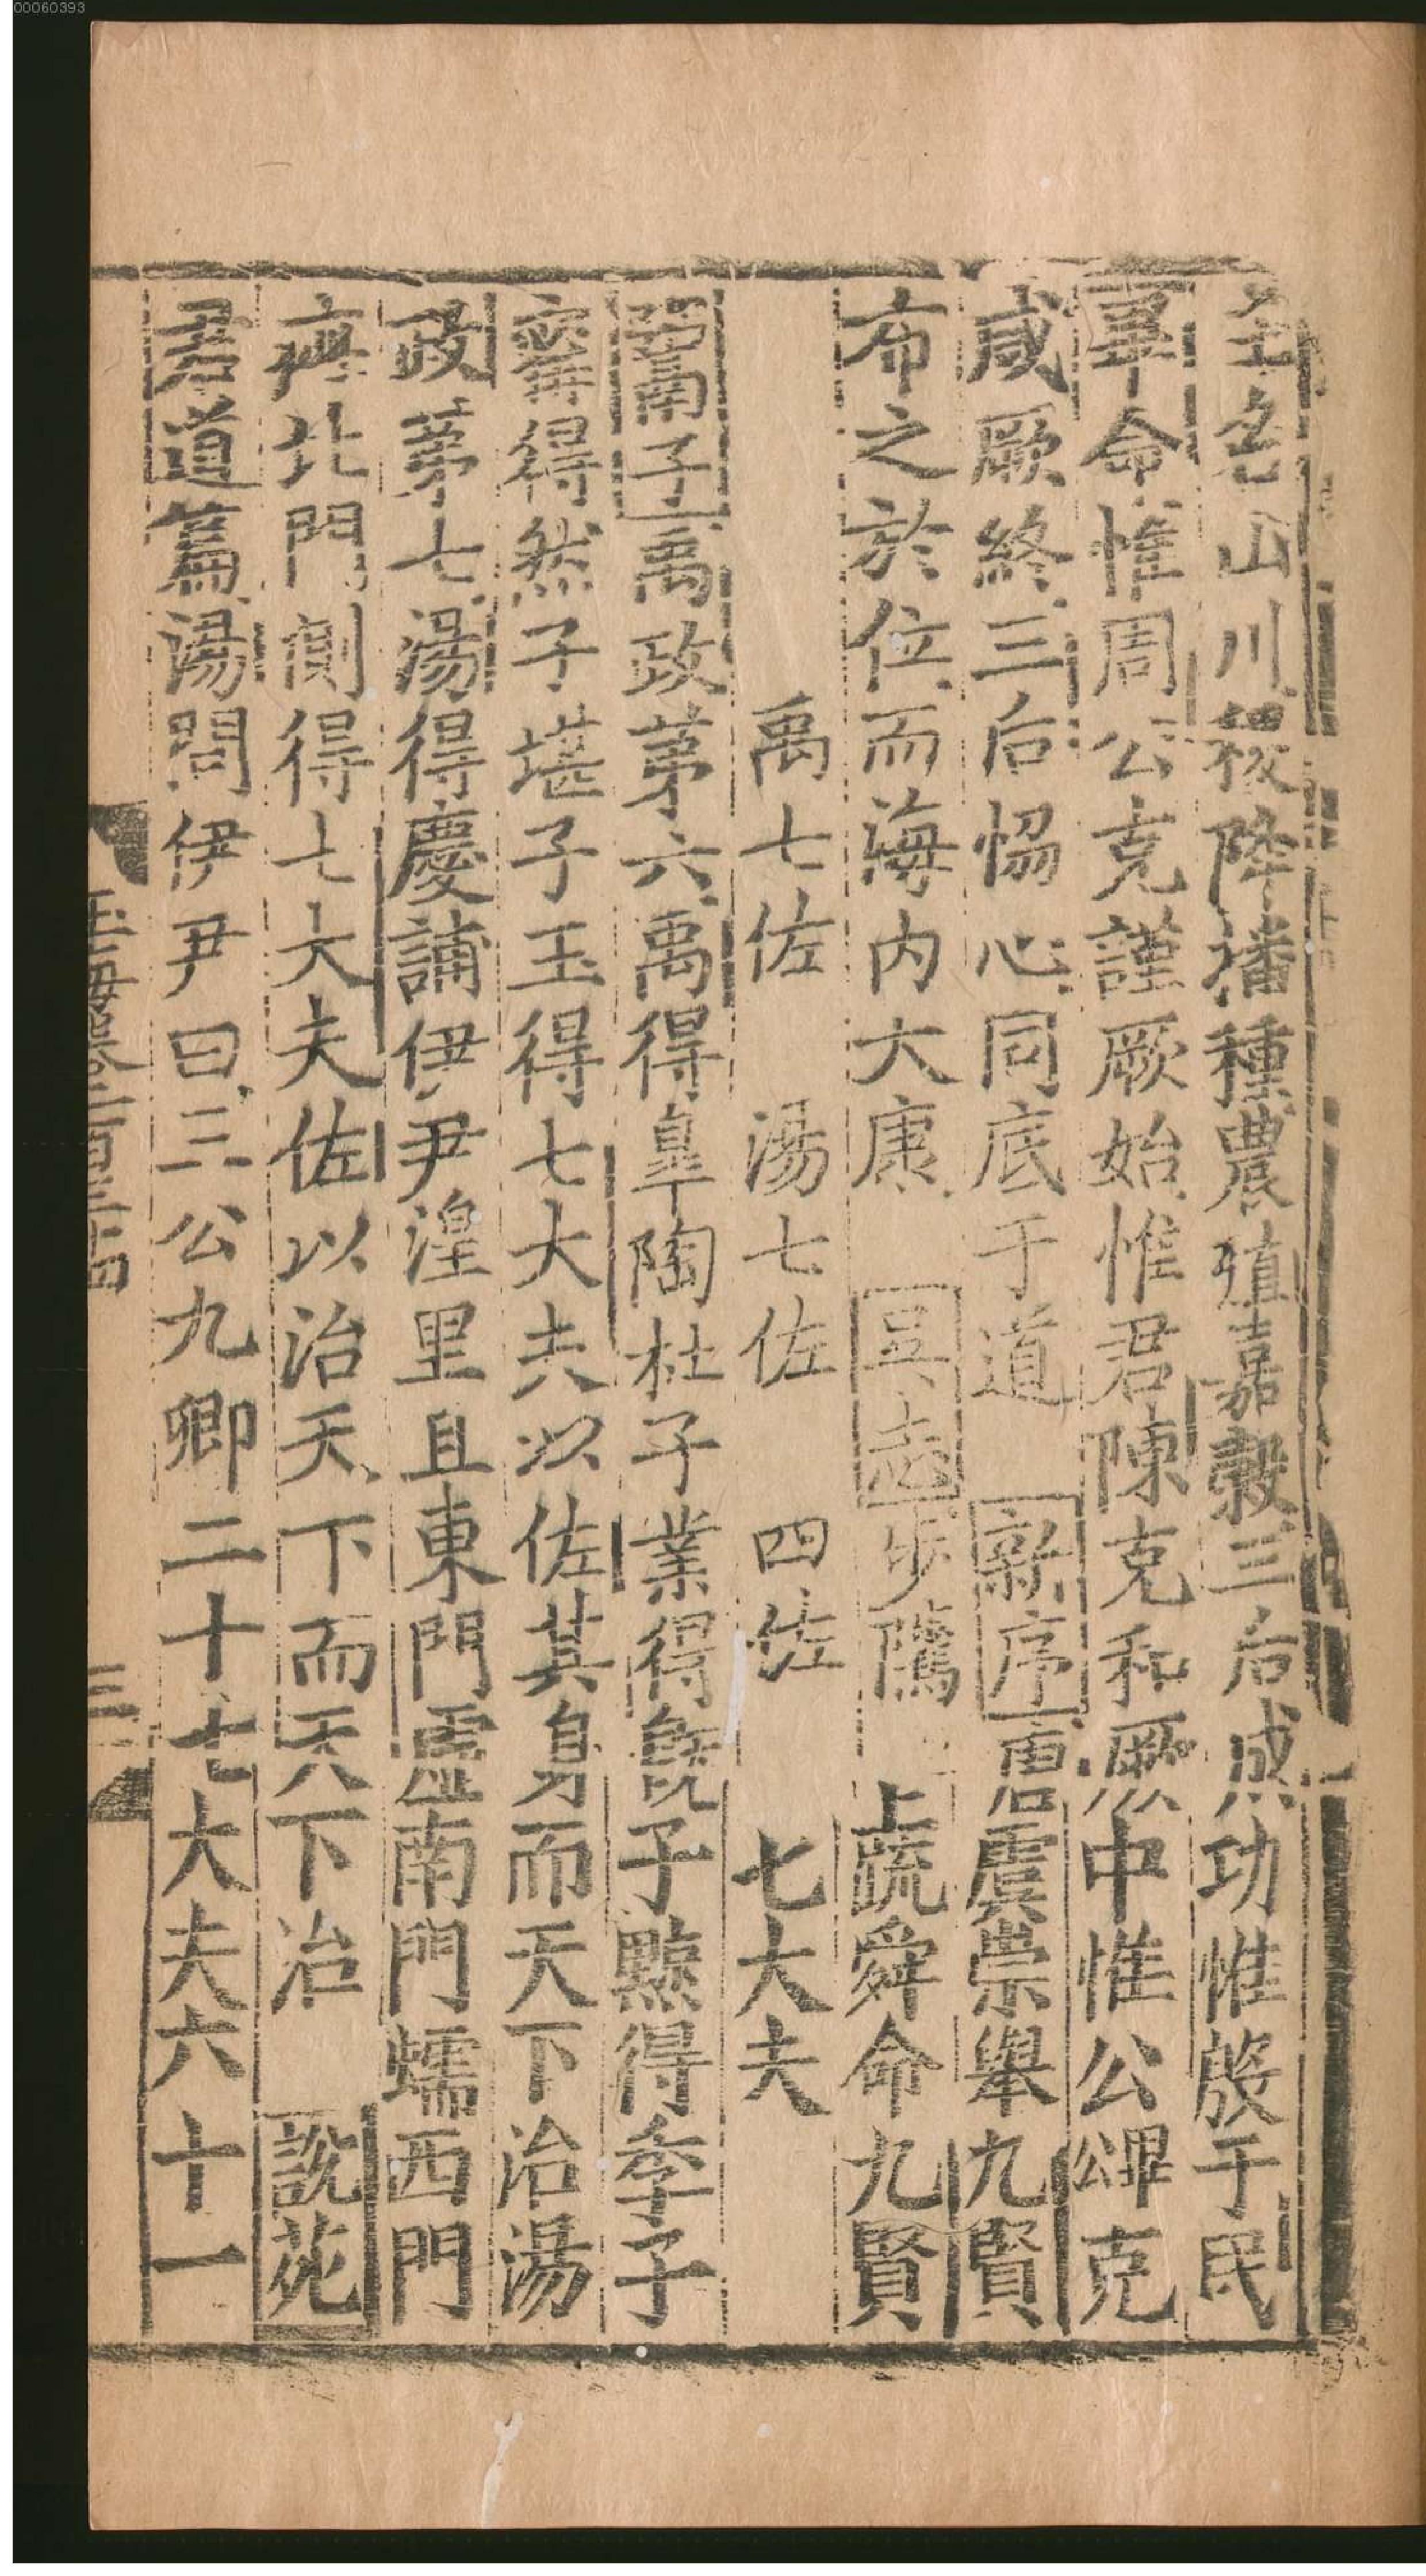 主名山川稷降播種農殖嘉穀三后成功惟殷于民
畢命惟周公克謹厥始惟君陳克和厥中惟公畢克
成厥終三后恊心同底于道 新序唐虞崇舉九賢
布之於位而海内大康 吴志步隲上疏舜命九賢
禹七佐 湯七佐 四佐 七大夫
鬻子禹政苐六禹得臯陶杜子業得旣子黥得季子
甯得然子堪子玉得七大夫以佐其身而天下治湯
政苐七湯得慶誧伊尹湟里且東門虚南門蠕西門
疵北門側得七大夫佐以治天下而天下治 説苑
君道篇湯問伊尹曰三公九卿二十七大夫六十一
玉海卷一百三十四
三
00060393